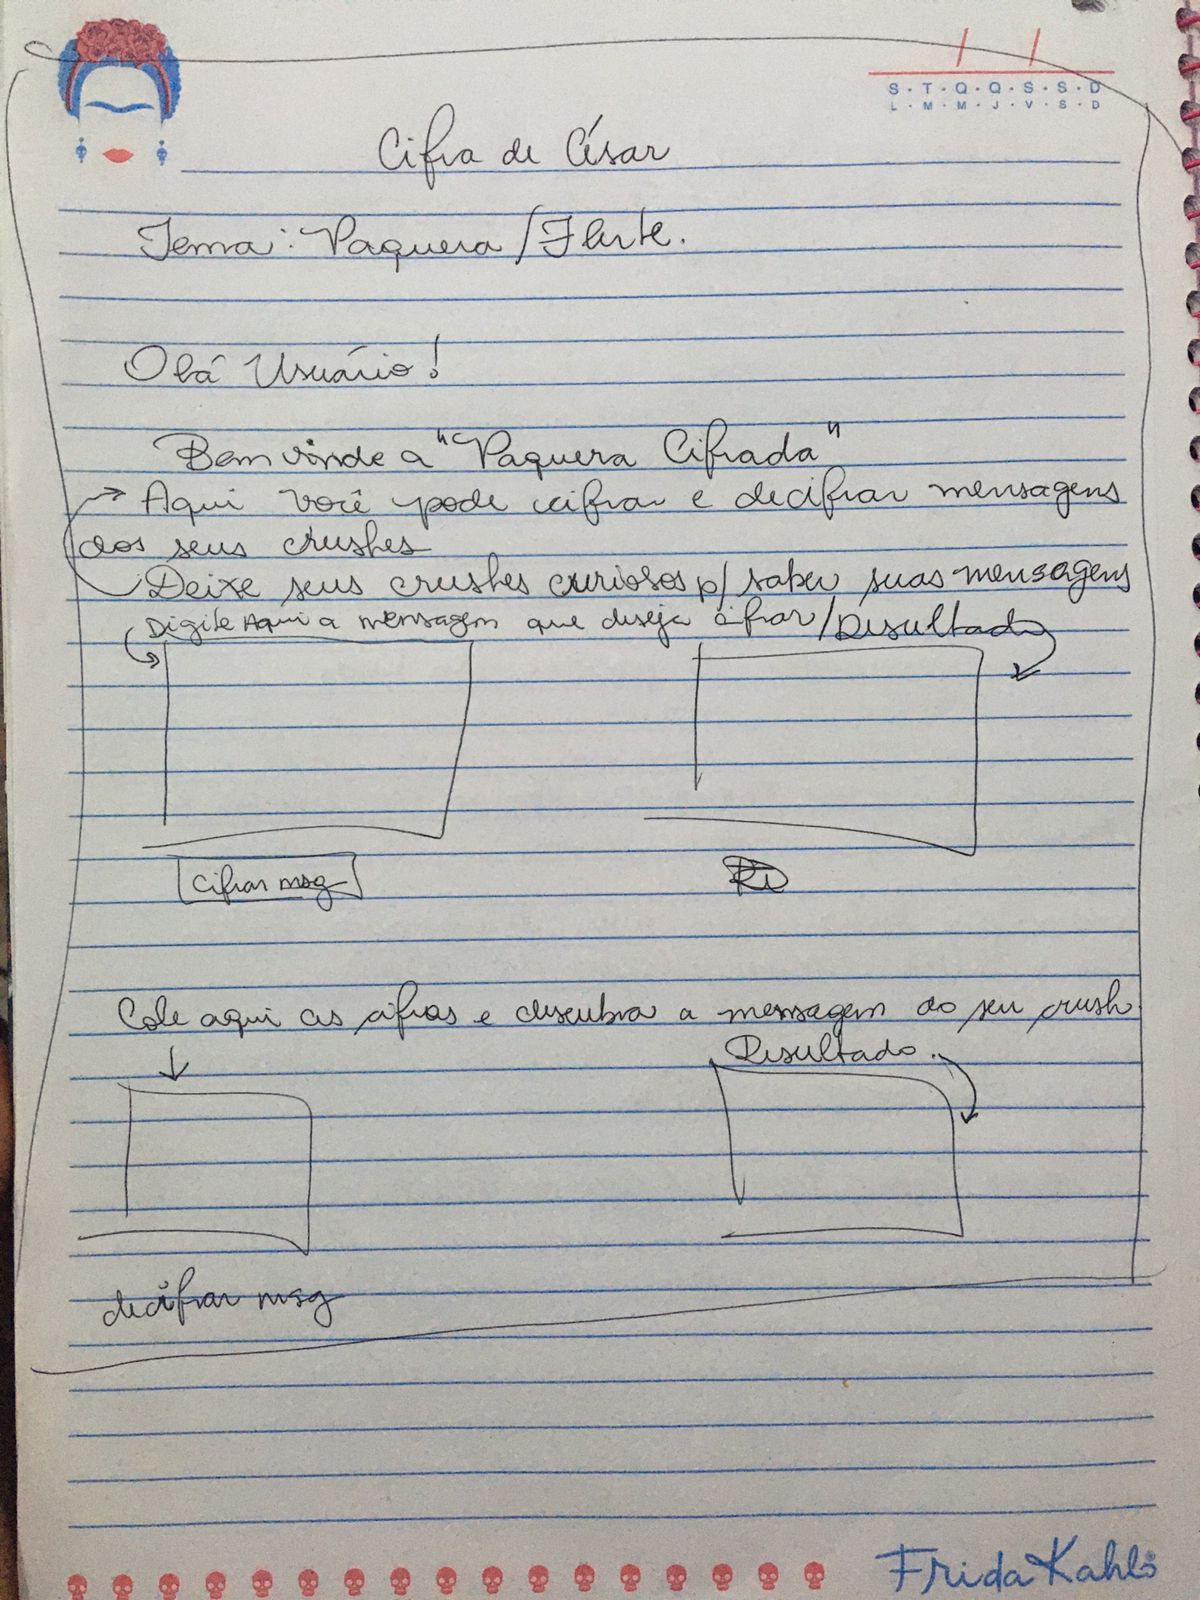 S · T · Q · Q · S · S · D
L · M · M · J · V · S · D
Cifra de César
Tema: Paquera/Flerte.
Olá Usuário!
Bem vinde a "Paquera Cifrada"
Aqui você pode cifrar e decifrar mensagens
dos seus crushes
Deixe seus crushes curiosos p/ saber suas mensagens
Digite Aqui a mensagem que deseja cifrar/Resultado
Cifrar msg
Cole aqui as cifras e descubra a mensagem do seu crush
Resultado.
decifrar msg
Frida Kahlo